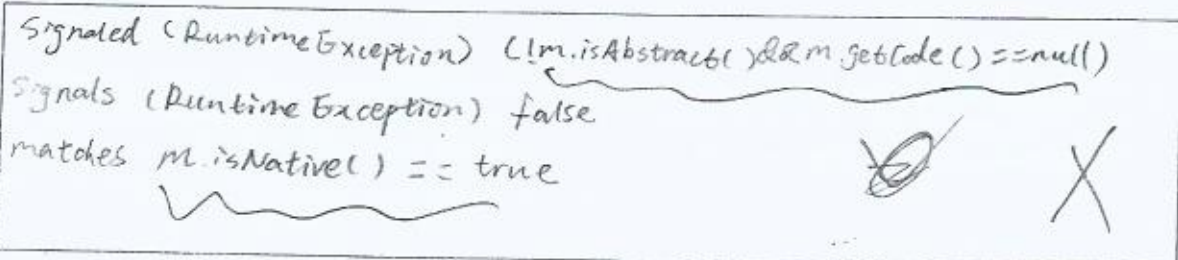 Signaled (RuntimeException) (!m.isAbstract()&&m.getCode()==null)
Signals (RuntimeException) false
matches m.isNative() == true